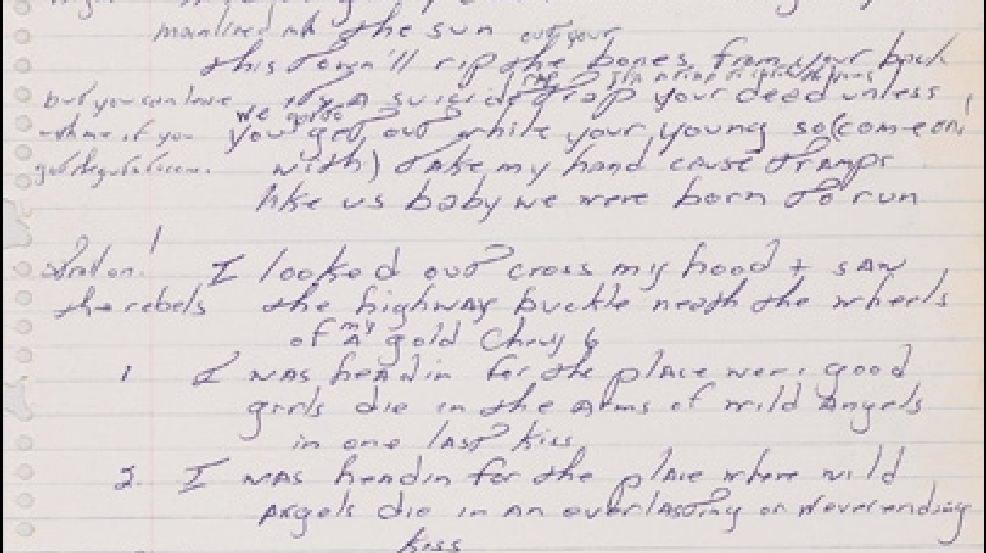 the sun out your
this town'll rip the bones from your back
but you can leave it's a suicide trap your dead unless
we gotta
you get out while your young so (come on!
with) take my hand cause tramps
like us baby we were born to run
I looked out cross my hood + saw
the rebels the highway buckle neath the wheels
of my A gold Chevy 6
1 I was headin for the place were good
girls die in the arms of wild Angels
in one last kiss
2. I was headin for the place where wild
Angels die in an everlasting or Neverending
kiss